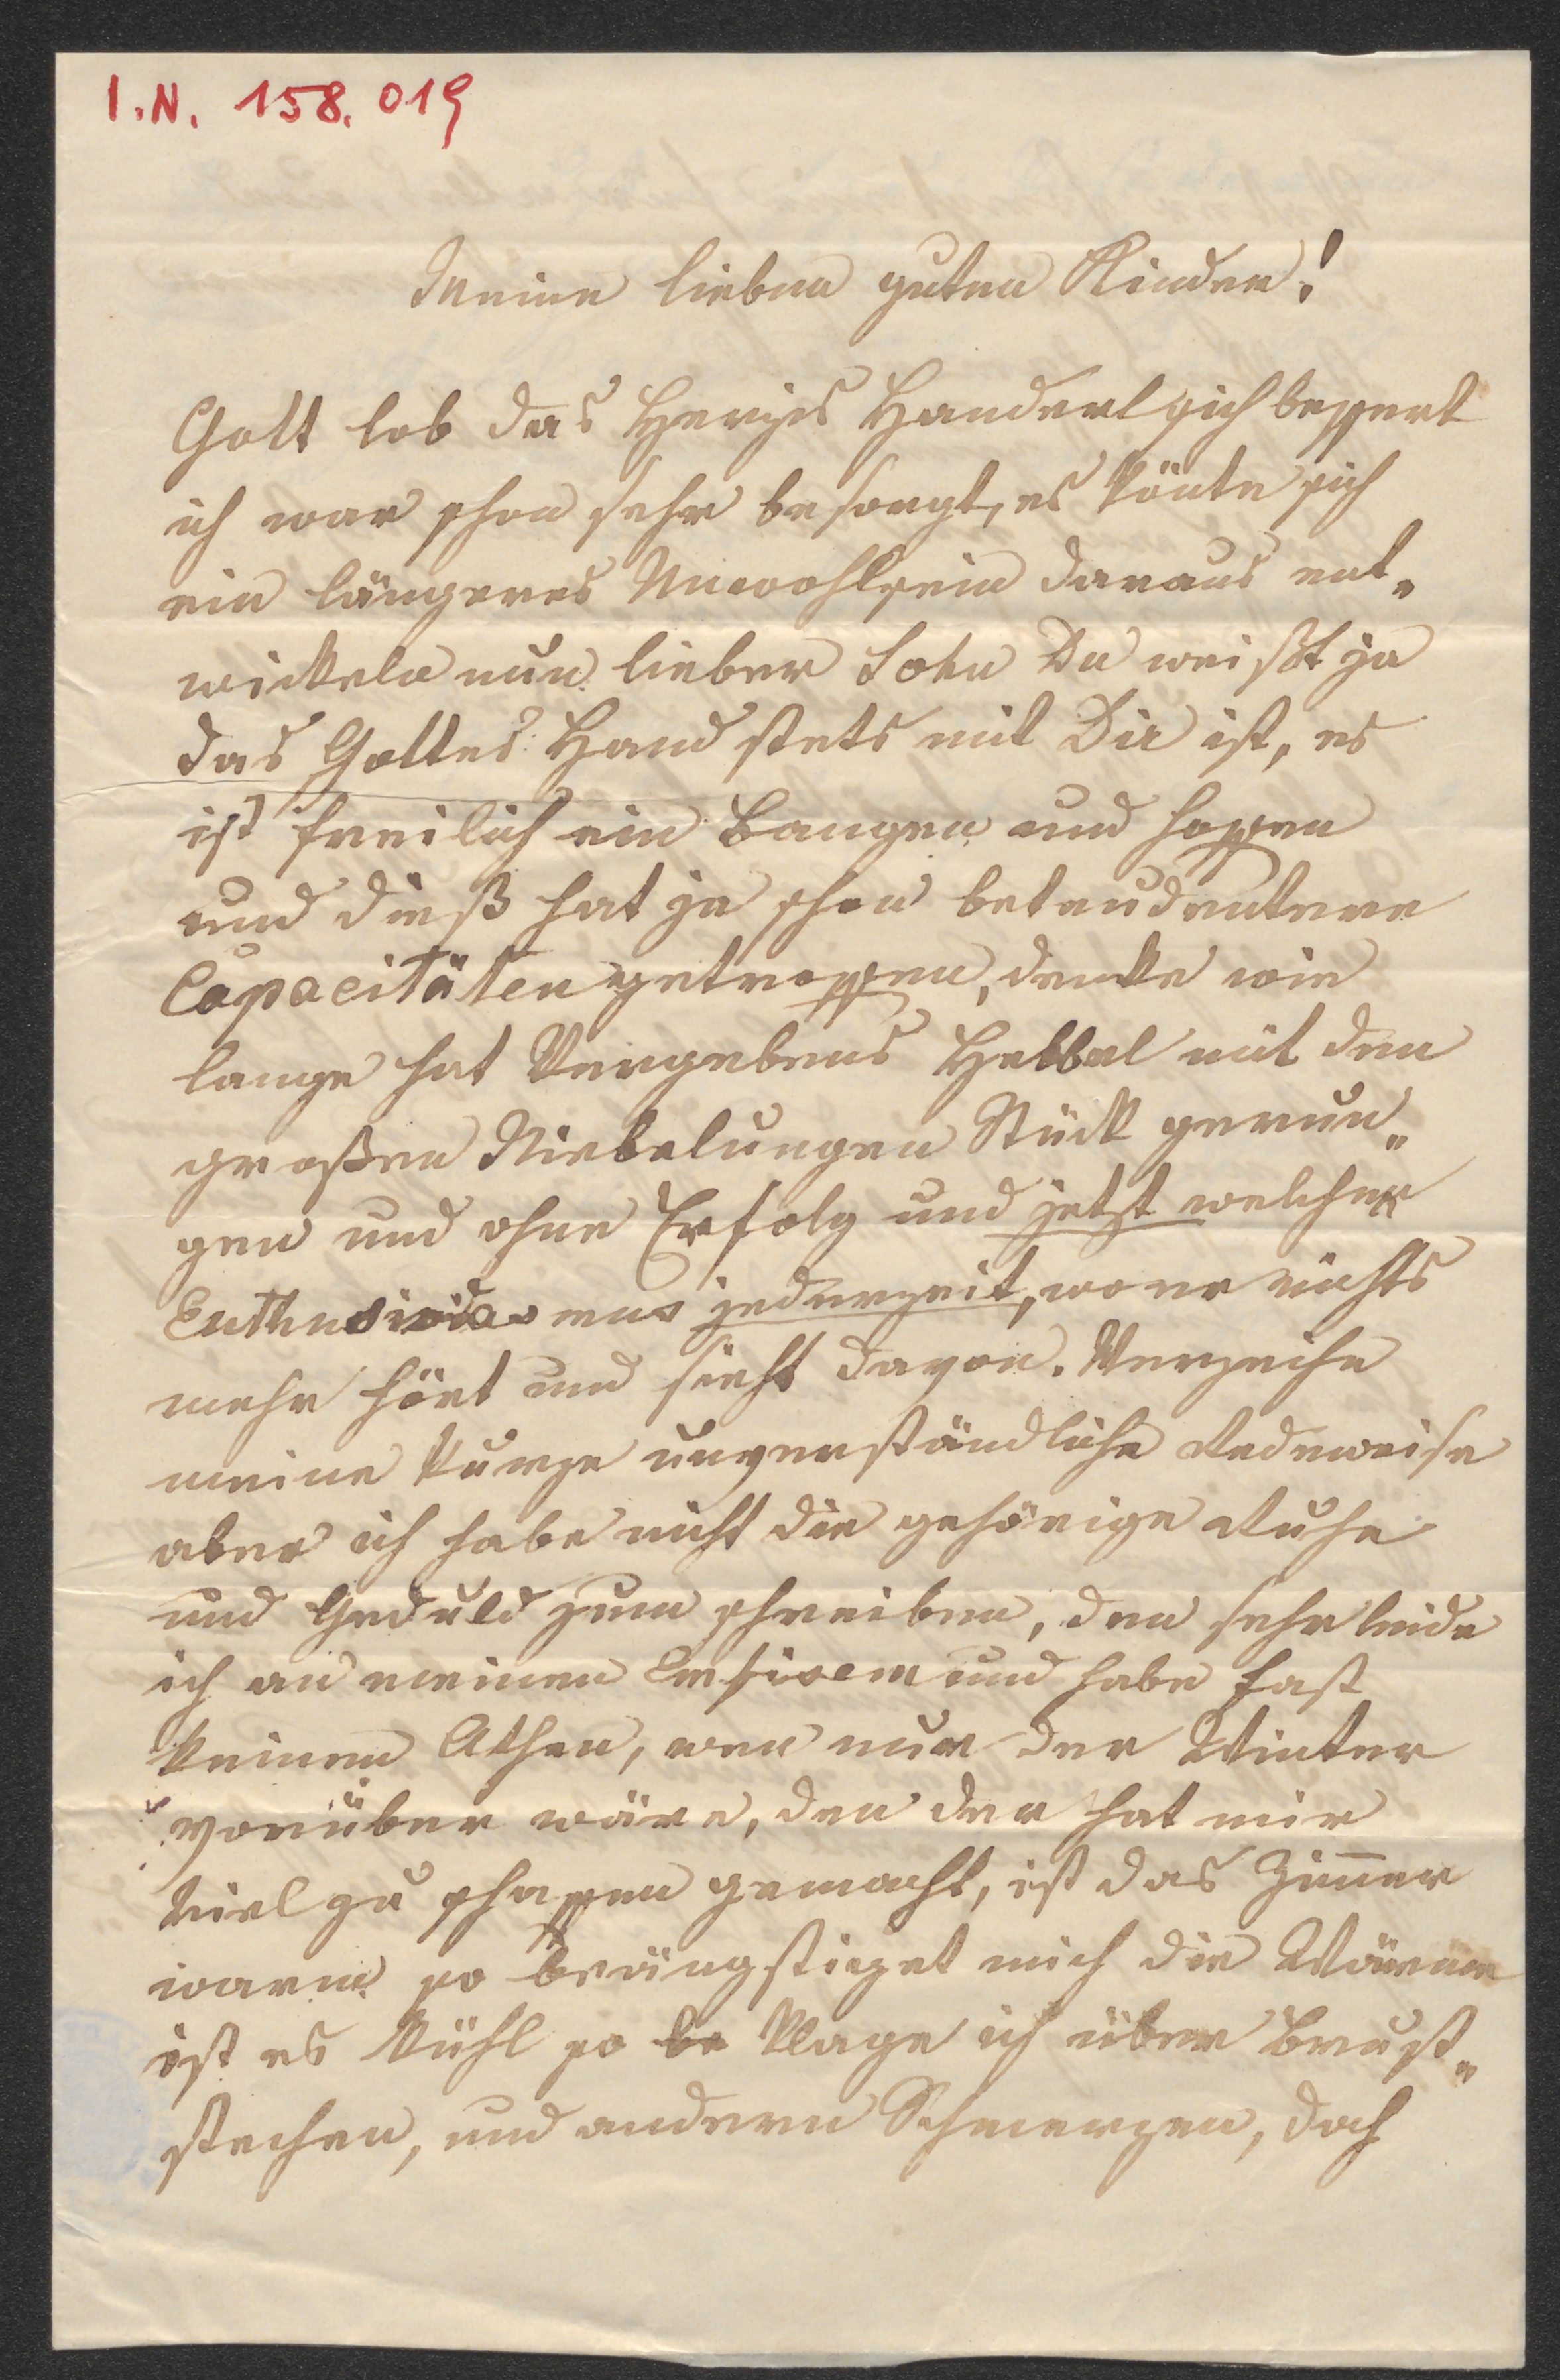 I.N. 158.019
Meine lieben guten Kinder!
Gott lob das Herzes Handerl sich bessert
ich war schon sehr besorgt, es könte sich
ein längeres Unwohlsein daraus ent„
wickeln nun lieber Sohn Du weißt ja
das Gottes Hand stets mit Dir ist, es
ist freilich ein Bangen und hoffen
und dieß hat ja schon beteudentere
Capacitäten getroffen, denke wie
lange hat Vergebens Hebbel mit den
großen Niebelungen Stück gerun„
gen und ohne Erfolg und jetzt welcher
jederzeit, wo er nichts
mehr hört und sieht davon. Verzeihe
meine kurze unverständliche Redeweise
aber ich habe nicht die gehörige Ruhe
und Geduld zum schreiben, den sehr leide
ich an meinen und habe fast
keinen Athen, wen nur der Winter
vorüber wäre, den der hat mir
viel zu schaffen gemacht, ist das Zimer
warm so beängstiget mich die Wärme
ist es kühl so be klage ich über Brust„
stechen, und andern Schmerzen, doch